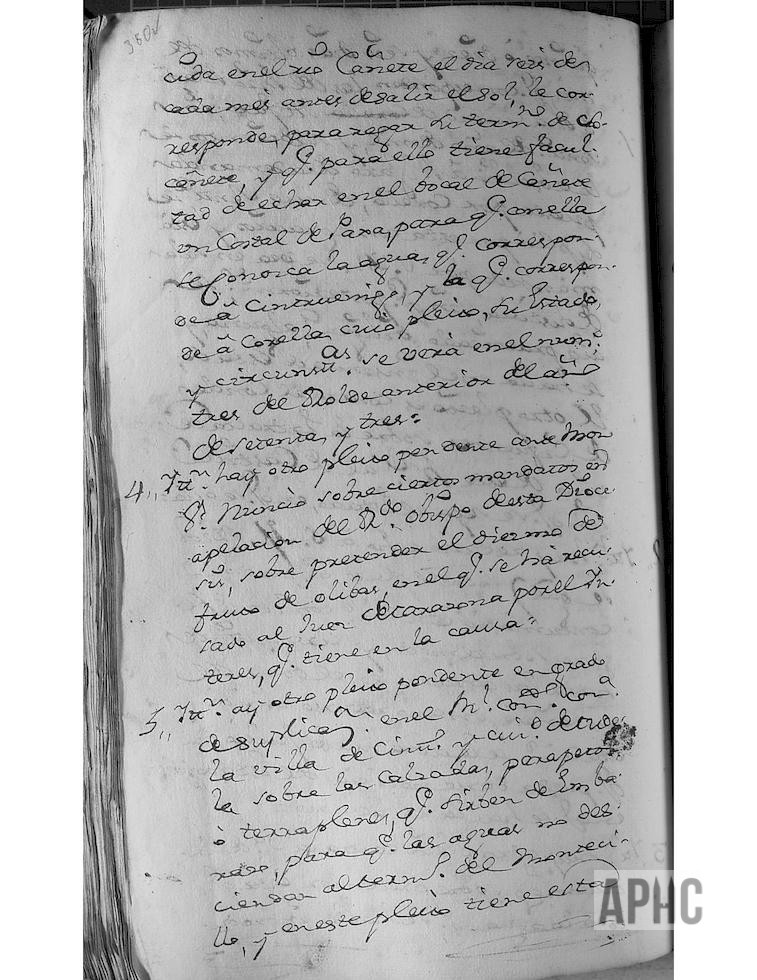 350v
cida en el rio Cañete el dia seis de
cada mes antes de salir el sol, le cor-
responde, para regar su termno. de
cañete, y qe. para ello tiene facul-
tad de echar en el bocal de Cañete
un Costal de Paxa, para qe. con ella
se conozca la agua, qe. correspon-
de â Cintruenigo, y la qe. correspon-
de â Corella, cuio pleito, su estado,
y circunstas. se verá en el num.
tres del Rolde anterior del año
de setenta, y tres=
4,, Ittn. hay otro pleito pendente ante Mon
Sr. Nuncio sobre ciertos mandatos en
apelacion del Rdo. Obispo de esta Dioce-
sis, sobre pretender el diezmo de
fruto de olibas, en el qe. se há recu-
sado al Juez de Tarazona por el In-
teres, qe. tiene en la causa=
5,, Ittn. ay otro pleito pendente en grado
de suplicaon. en el Rl. conso. con
la villa de Cintl. y ciud. de tude-
la sobre las Calzadas, parapetos
ò terraplenes, qe. sirben de Emba-
razo, para qe. las aguas no des-
ciendan al termo. del Monteci-
llo, y en este pleito tiene esta
APHC